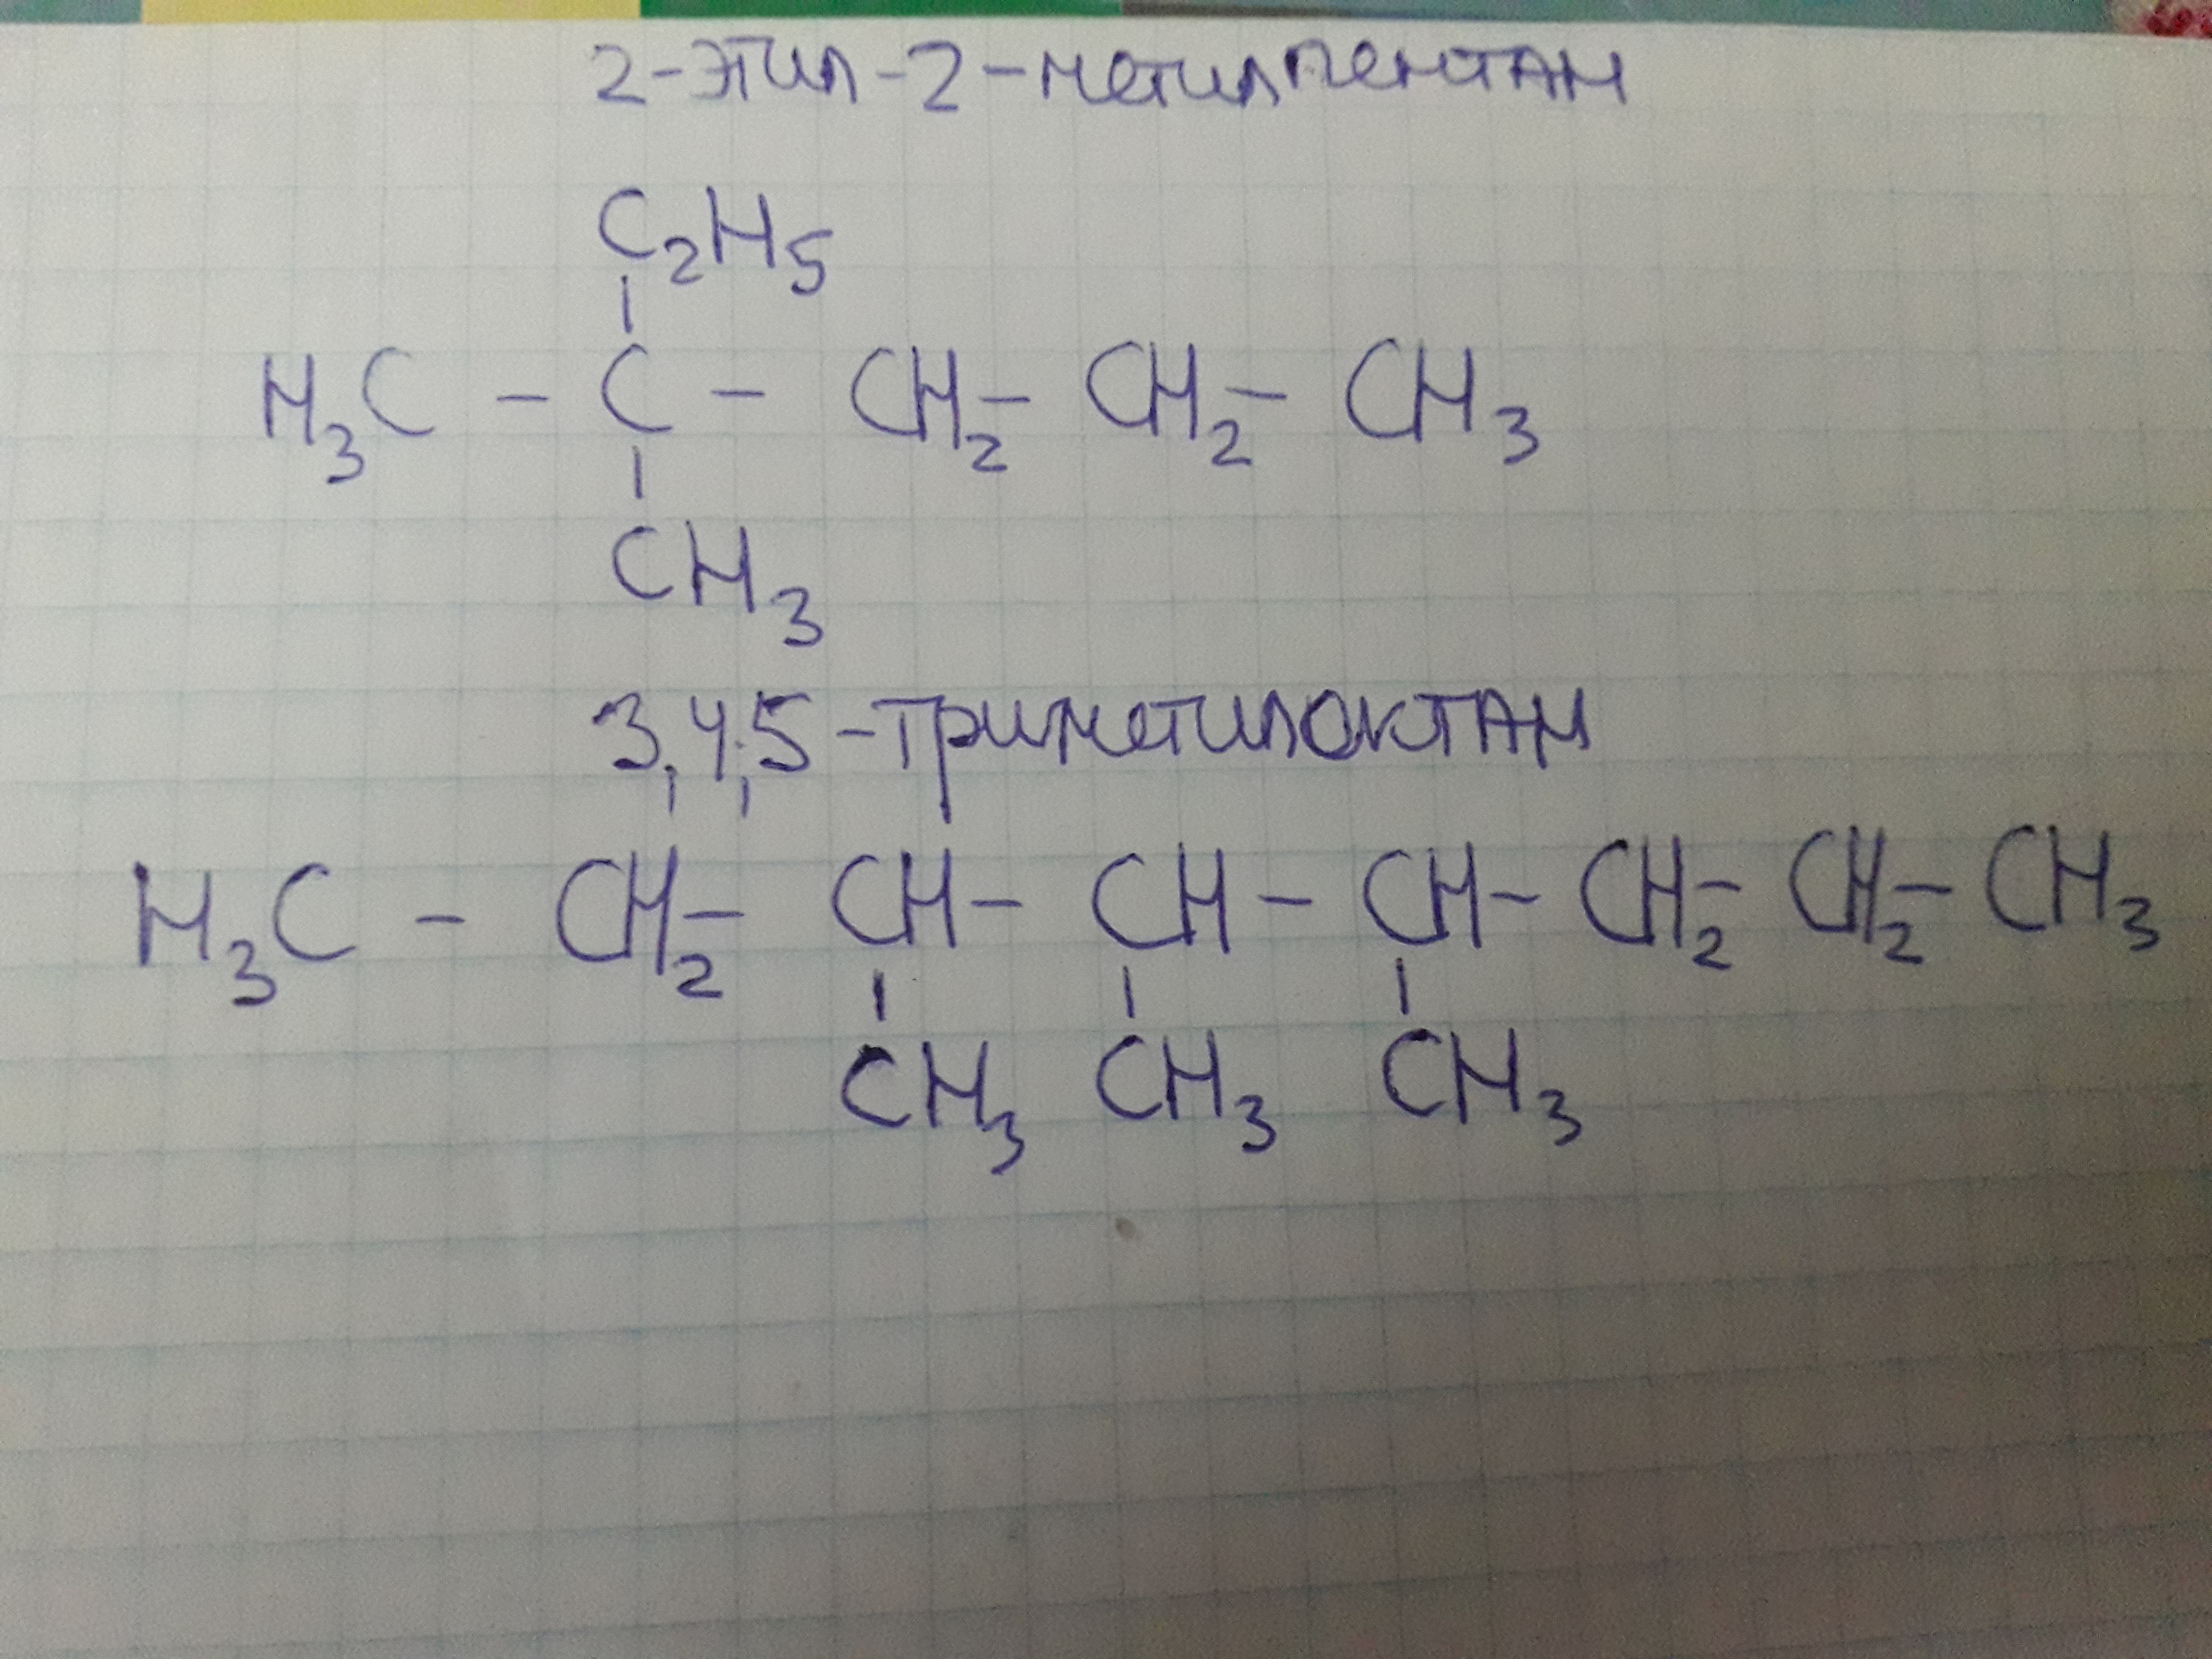 2-этил-2-метилпентан
C₂H₅
H₃C - C - CH₂ - CH₂ - CH₃
CH₃
3,4,5-триметилоктан
H₃C - CH₂ - CH - CH - CH - CH₂ - CH₂ - CH₃
CH₃ CH₃ CH₃